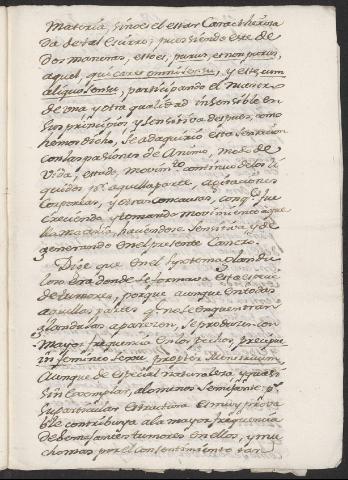 Materia, sino es el estar Caracterisa
da de tal Esirro; pues siendo este de
dos maneras, esto es, purus, et non purus,
aquel, qui caret omni sensu, y este, cum
aliquo sensu, participando el nuestro
de una y otra qualidad insensible en
sus principios y sensitiva despues, como
hemos dicho, se adquirio esta sensacion
con las pasiones de Animo, modo de
Vida, estado, movim.to continuo de los li
quidos p.r aquella parte, agitaciones
Corporales, y otras concausas, con q.e fue
Creciendo y tomando movimiento aque
lla materia, haciendose Sensitiva y de
generando en el presente Cancro.
Dixe que en el systema glandu
loso era donde se formava esta especie
de tumores, porque aunque en todas
aquellas partes q.e no se encuentran
glandulas aparecen, se producen con
mayor frequencia en los pechos, precipue
in femineo sexu, propter Menstruum
Aunque de especial naturaleza, y quasi
sin exemplar, a lo menos Semejante p.r
su particular estructura es muy prova
ble contribuya a la mayor frequencia
de semejantes tumores en ellos, y mu
cho mas por el consentimiento tan